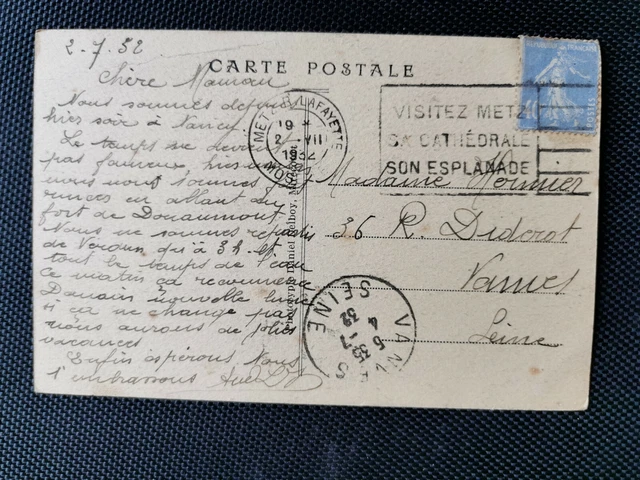 2-7.32
CARTE POSTALE
Chère Maman
Nous sommes depuis
hier soir à Nancy.
Le temps ne devient
pas fameux hier
nous nous sommes
en allant au
fort de Douaumont
Nous ne sommes repartis
de Verdun qu'à 3h. et
tout le temps de l'eau
ce matin ça recommence
Demain nouvelle lune
si ça ne change pas
nous aurons de jolies
vacances
Enfin espérons Nous
t'embrassons
METZ LAFAYETTE
19 *
2 VII
1932
MOSELLE
VISITEZ METZ
SA CATHÉDRALE
SON ESPLANADE
Madame Monnier
36 R. Diderot
Vanves
Seine
Phototypie Daniel Delboy, Mirecourt
VANVES
SEINE
5 35
4 -7
32